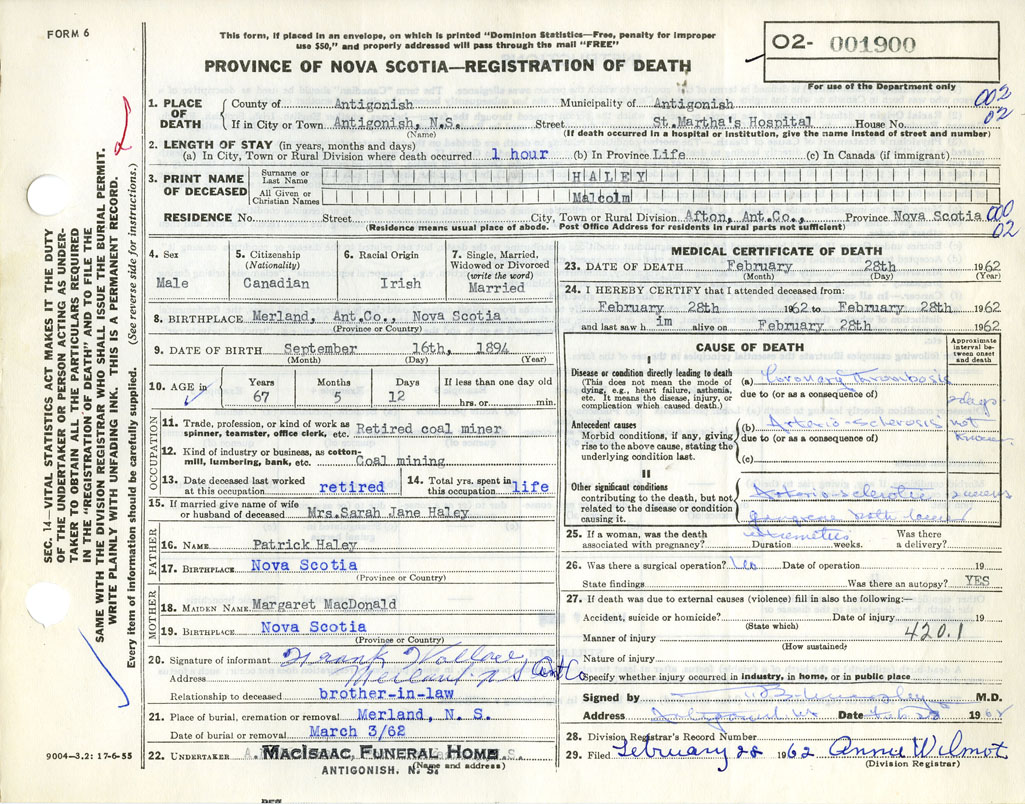 FORM 6
This form, if placed in an envelope, on which is printed "Dominion Statistics—Free, penalty for improper
use $50," and properly addressed will pass through the mail "FREE"
PROVINCE OF NOVA SCOTIA—REGISTRATION OF DEATH
O2- 001900
For use of the Department only
SEC. 14—VITAL STATISTICS ACT MAKES IT THE DUTY
OF THE UNDERTAKER OR PERSON ACTING AS UNDER-
TAKER TO OBTAIN ALL THE PARTICULARS REQUIRED
IN THE "REGISTRATION OF DEATH" AND TO FILE THE
SAME WITH THE DIVISION REGISTRAR WHO SHALL ISSUE THE BURIAL PERMIT.
WRITE PLAINLY WITH UNFADING INK. THIS IS A PERMANENT RECORD.
Every item of information should be carefully supplied. (See reverse side for instructions.)
1. PLACE OF DEATH County of Antigonish Municipality of Antigonish 002
If in City or Town Antigonish, N.S. Street St.Martha's Hospital House No. 02
(Name) (If death occurred in a hospital or institution, give the name instead of street and number)
2. LENGTH OF STAY (in years, months and days)
(a) In City, Town or Rural Division where death occurred 1 hour (b) In Province Life (c) In Canada (if immigrant)
3. PRINT NAME OF DECEASED Surname or Last Name HALEY
All Given or Christian Names Malcolm
RESIDENCE No. Street City, Town or Rural Division Afton, Ant.Co., Province Nova Scotia 000
(Residence means usual place of abode. Post Office Address for residents in rural parts not sufficient) 02
4. Sex 5. Citizenship (Nationality) 6. Racial Origin 7. Single, Married, Widowed or Divorced (write the word)
Male Canadian Irish Married
8. BIRTHPLACE Merland, Ant.Co., Nova Scotia
(Province or Country)
9. DATE OF BIRTH September 16th, 1894
(Month) (Day) (Year)
10. AGE in Years Months Days If less than one day old
67 5 12 hrs. or min.
OCCUPATION
11. Trade, profession, or kind of work as
spinner, teamster, office clerk, etc. Retired coal miner
12. Kind of industry or business, as cotton-
mill, lumbering, bank, etc. Coal mining
13. Date deceased last worked at this occupation retired 14. Total yrs. spent in this occupation life
15. If married give name of wife
or husband of deceased Mrs.Sarah Jane Haley
FATHER
16. NAME Patrick Haley
17. BIRTHPLACE Nova Scotia
(Province or Country)
MOTHER
18. MAIDEN NAME Margaret MacDonald
19. BIRTHPLACE Nova Scotia
(Province or Country)
20. Signature of informant Frank Wallace
Address Merland N S Ant Co
Relationship to deceased brother-in-law
21. Place of burial, cremation or removal Merland, N. S.
Date of burial or removal March 3/62
22. UNDERTAKER MACISAAC FUNERAL HOME
(Name and address)
ANTIGONISH, N. S.
9004—3.2: 17-6-55
MEDICAL CERTIFICATE OF DEATH
23. DATE OF DEATH February 28th 1962
(Month) (Day) (Year)
24. I HEREBY CERTIFY that I attended deceased from:
February 28th 1962 to February 28th 1962
and last saw him alive on February 28th 1962
CAUSE OF DEATH
Approximate interval between onset and death
I
Disease or condition directly leading to death
(This does not mean the mode of
dying, e.g., heart failure, asthenia,
etc. It means the disease, injury, or
complication which caused death.)
(a) Coronary Thrombosis
due to (or as a consequence of) days
Antecedent causes
Morbid conditions, if any, giving
rise to the above cause, stating the
underlying condition last.
(b) Arterio-sclerosis not
due to (or as a consequence of) known
(c)
II
Other significant conditions
contributing to the death, but not
related to the disease or condition
causing it.
Arterio-sclerotic
gangrene both lower
extremities
25. If a woman, was the death Was there
associated with pregnancy? Duration weeks. a delivery?
26. Was there a surgical operation? Date of operation 19
State findings Was there an autopsy? YES
27. If death was due to external causes (violence) fill in also the following:—
Accident, suicide or homicide? Date of injury 19
(State which) 420.1
Manner of injury
(How sustained)
Nature of injury
Specify whether injury occurred in industry, in home, or in public place
Signed by M.D.
Address Antigonish NS Date Feb 28 1962
28. Division Registrar's Record Number
29. Filed February 28 1962 Annie Wilmot
(Division Registrar)